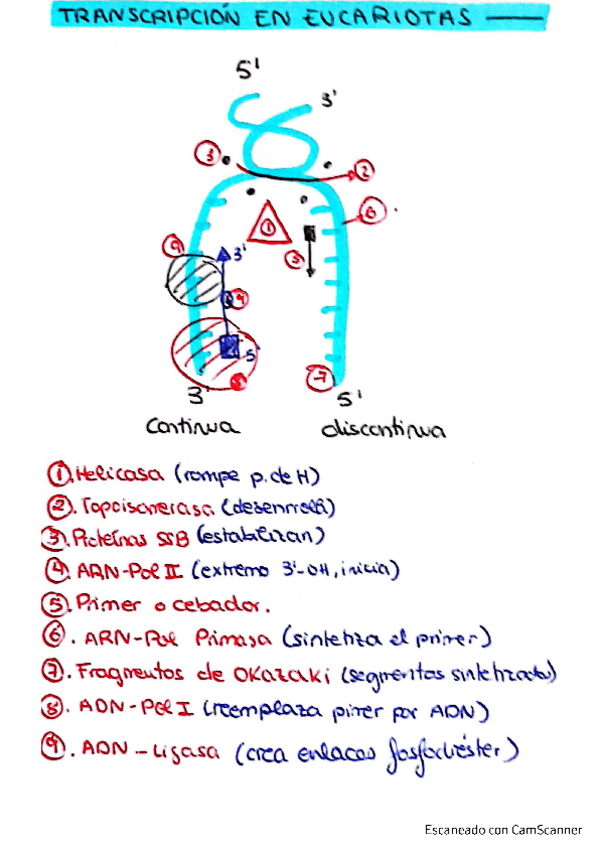 TRANSCRIPCIÓN EN EUCARIOTAS
5'
3'
3
2
1
6
3
9
3'
4
5
8
7
3'
5'
continua
discontinua
1. Helicasa (rompe p. de H)
2. Topoisomerasa (desenrolla)
3. Proteínas SSB (estabilizan)
4. ARN-Pol II (extremo 3'-OH, inicia)
5. Primer o cebador.
6. ARN-Pol Primasa (sintetiza el primer)
7. Fragmentos de Okazaki (segmentos sintetizados)
8. ADN-Pol I (reemplaza primer por ADN)
9. ADN-Ligasa (crea enlaces fosfodiéster)
Escaneado con CamScanner